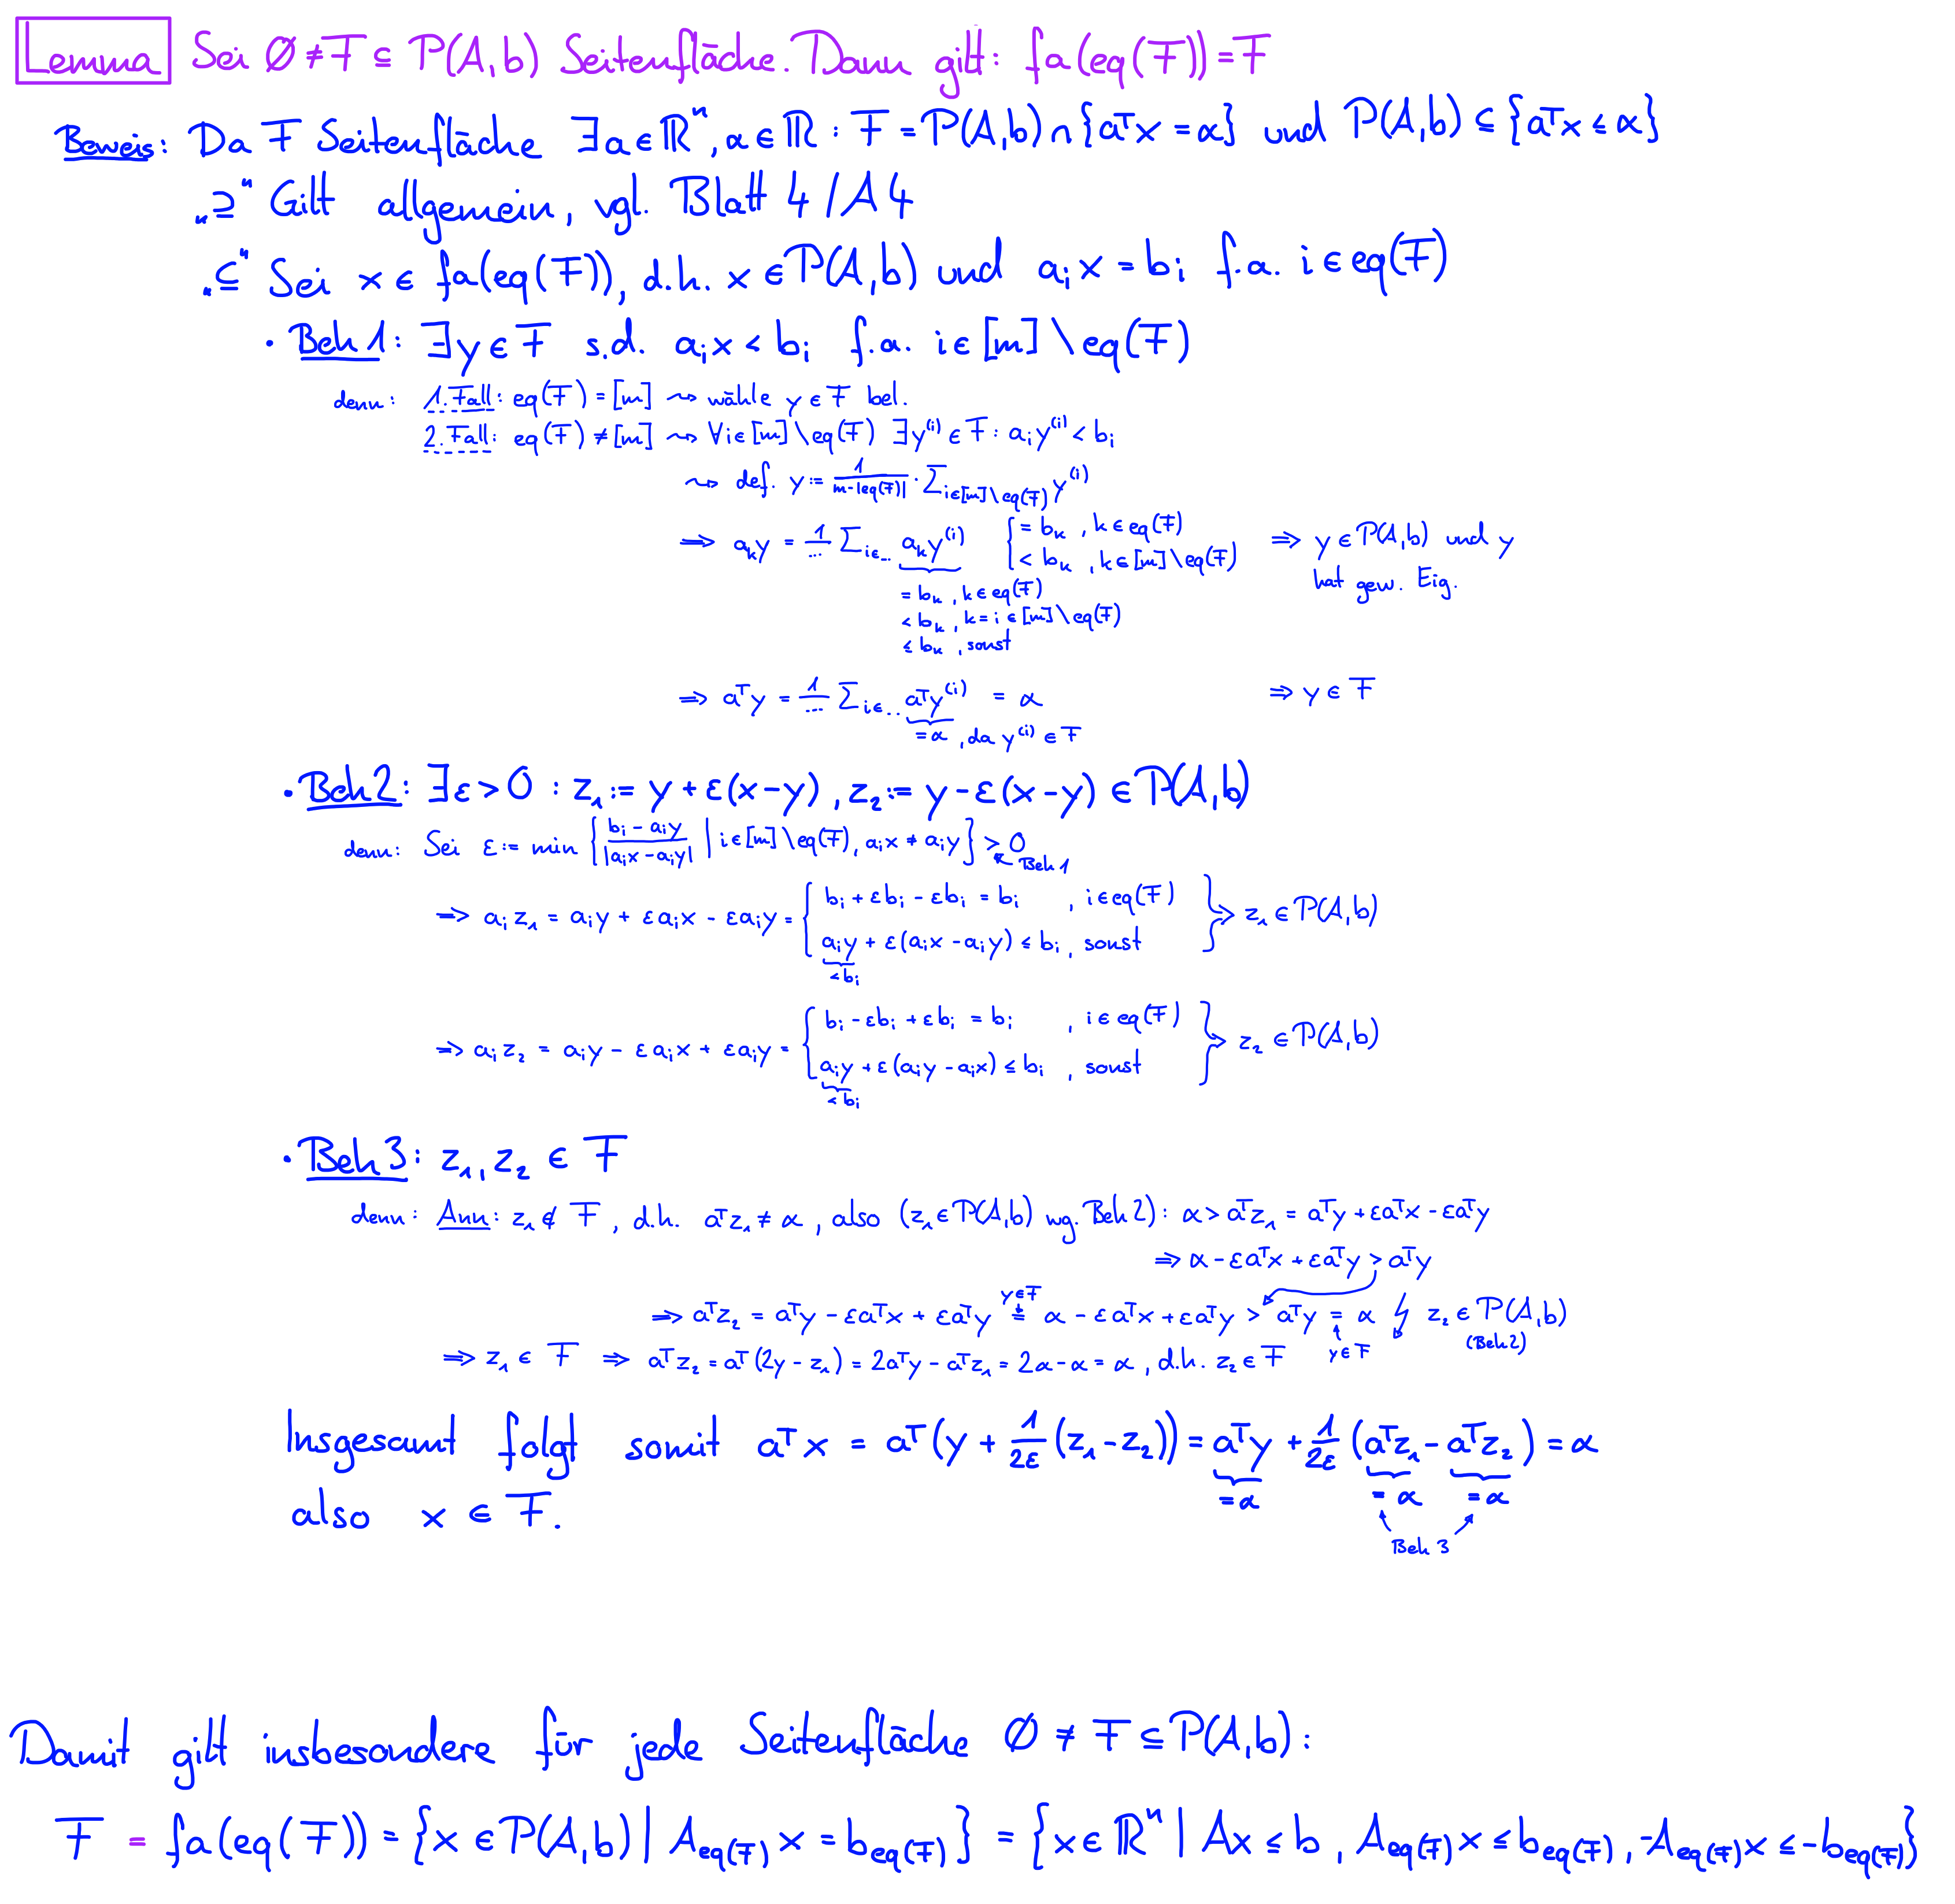 Lemma Sei ∅ ≠ F ⊆ P(A,b) Seitenfläche. Dann gilt: fa(eq(F)) = F
Beweis: Da F Seitenfläche ∃a∈ℝⁿ, α∈ℝ : F = P(A,b) ∩ {aᵀx = α} und P(A,b) ⊆ {aᵀx ≤ α}
„⊇" Gilt allgemein, vgl. Blatt 4/A4
„⊆" Sei x ∈ fa(eq(F)), d.h. x ∈ P(A,b) und aᵢx = bᵢ f.a. i ∈ eq(F)
• Beh 1: ∃y∈F s.d. aᵢx < bᵢ f.a. i∈[m]\eq(F)
denn: 1. Fall: eq(F) = [m] ⇝ wähle y ∈ F bel.
2. Fall: eq(F) ≠ [m] ⇝ ∀i∈[m]\eq(F) ∃y⁽ⁱ⁾ ∈ F : aᵢy⁽ⁱ⁾ < bᵢ
⇝ def. y := 1/(m-|eq(F)|) · ∑_{i∈[m]\eq(F)} y⁽ⁱ⁾
⇒ aₖy = 1/... ∑_{i∈...} aₖy⁽ⁱ⁾ { = bₖ , k∈eq(F) < bₖ , k∈[m]\eq(F) ⇒ y ∈ P(A,b) und y hat gew. Eig.
= bₖ , k∈eq(F)
< bₖ , k = i ∈ [m]\eq(F)
≤ bₖ , sonst
⇒ aᵀy = 1/... ∑_{i∈...} aᵀy⁽ⁱ⁾ = α ⇒ y ∈ F
= α , da y⁽ⁱ⁾ ∈ F
• Beh 2: ∃ε>0 : z₁ := y + ε(x-y), z₂ := y - ε(x-y) ∈ P(A,b)
denn: Sei ε := min { (bᵢ - aᵢy)/|aᵢx - aᵢy| | i∈[m]\eq(F), aᵢx ≠ aᵢy } > 0
Beh 1
⇒ aᵢz₁ = aᵢy + εaᵢx - εaᵢy = { bᵢ + εbᵢ - εbᵢ = bᵢ , i∈eq(F)
aᵢy + ε(aᵢx - aᵢy) ≤ bᵢ , sonst } ⇒ z₁ ∈ P(A,b)
< bᵢ
⇒ aᵢz₂ = aᵢy - εaᵢx + εaᵢy = { bᵢ - εbᵢ + εbᵢ = bᵢ , i∈eq(F)
aᵢy + ε(aᵢy - aᵢx) ≤ bᵢ , sonst } ⇒ z₂ ∈ P(A,b)
< bᵢ
• Beh 3: z₁, z₂ ∈ F
denn: Ann: z₁ ∉ F , d.h. aᵀz₁ ≠ α , also (z₁∈P(A,b) wg. Beh 2): α > aᵀz₁ = aᵀy + εaᵀx - εaᵀy
⇒ α - εaᵀx + εaᵀy > aᵀy
⇒ aᵀz₂ = aᵀy - εaᵀx + εaᵀy = α - εaᵀx + εaᵀy > aᵀy = α ↯ z₂ ∈ P(A,b)
y∈F y∈F (Beh 2)
⇒ z₁ ∈ F ⇒ aᵀz₂ = aᵀ(2y - z₁) = 2aᵀy - aᵀz₁ = 2α - α = α , d.h. z₂ ∈ F
Insgesamt folgt somit aᵀx = aᵀ(y + 1/(2ε) (z₁ - z₂)) = aᵀy + 1/(2ε) (aᵀz₁ - aᵀz₂) = α
= α = α = α
also x ∈ F.
Beh 3
Damit gilt insbesondere für jede Seitenfläche ∅ ≠ F ⊆ P(A,b):
F = fa(eq(F)) = {x ∈ P(A,b) | A_{eq(F)} x = b_{eq(F)}} = {x ∈ ℝⁿ | Ax ≤ b , A_{eq(F)} x ≤ b_{eq(F)} , -A_{eq(F)} x ≤ -b_{eq(F)}}